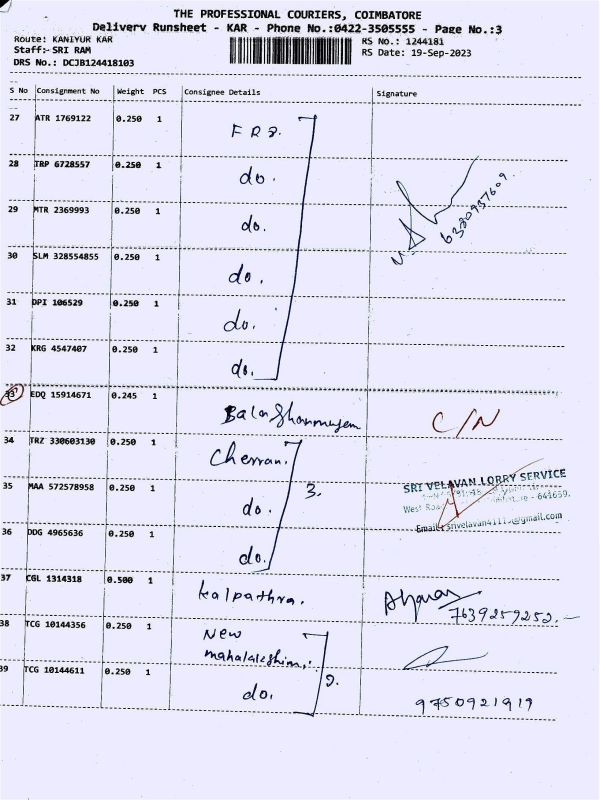 THE PROFESSIONAL COURIERS, COIMBATORE
Delivery Runsheet - KAR - Phone No.:0422-3505555 - Page No.:3
Route: KANIYUR KAR
Staff:- SRI RAM
DRS No.: DCJB124418103
RS No.: 1244181
RS Date: 19-Sep-2023
S No Consignment No Weight PCS Consignee Details Signature
27 ATR 1769122 0.250 1
28 TRP 6728557 0.250 1 do.
29 MTR 2369993 0.250 1 do.
6380937609.
30 SLM 328554855 0.250 1 do.
31 DPI 106529 0.250 1 do.
32 KRG 4547407 0.250 1 do.
33 EDQ 15914671 0.245 1 C/N
34 TRZ 330603130 0.250 1 Cherran.
35 MAA 572578958 0.250 1 do. 3.
SRI VELAVAN LORRY SERVICE
West - 641659.
Email:
36 DDG 4965636 0.250 1 do.
37 CGL 1314318 0.500 1 kalpathra.
7639259252.
38 TCG 10144356 0.250 1 New
39 TCG 10144611 0.250 1 do. 2.
9750921919